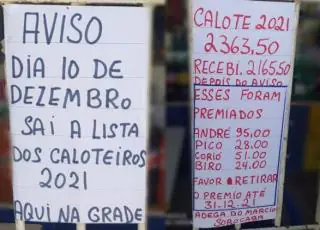 AVISO
DIA 10 DE
DEZEMBRO
SAI A LISTA
DOS CALOTEIROS
2021
AQUI NA GRADE
CALOTE 2021
2363,50
RECEBI. 2165,50
DEPOIS DO AVISO
ESSES FORAM
PREMIADOS
ANDRÉ 95,00
PICO 28.00
CORIÓ 51.00
BIRO 24.00
FAVOR RETIRAR
O PREMIO ATÉ
31-12-21
ADEGA DO MARCIO
SOROCABA